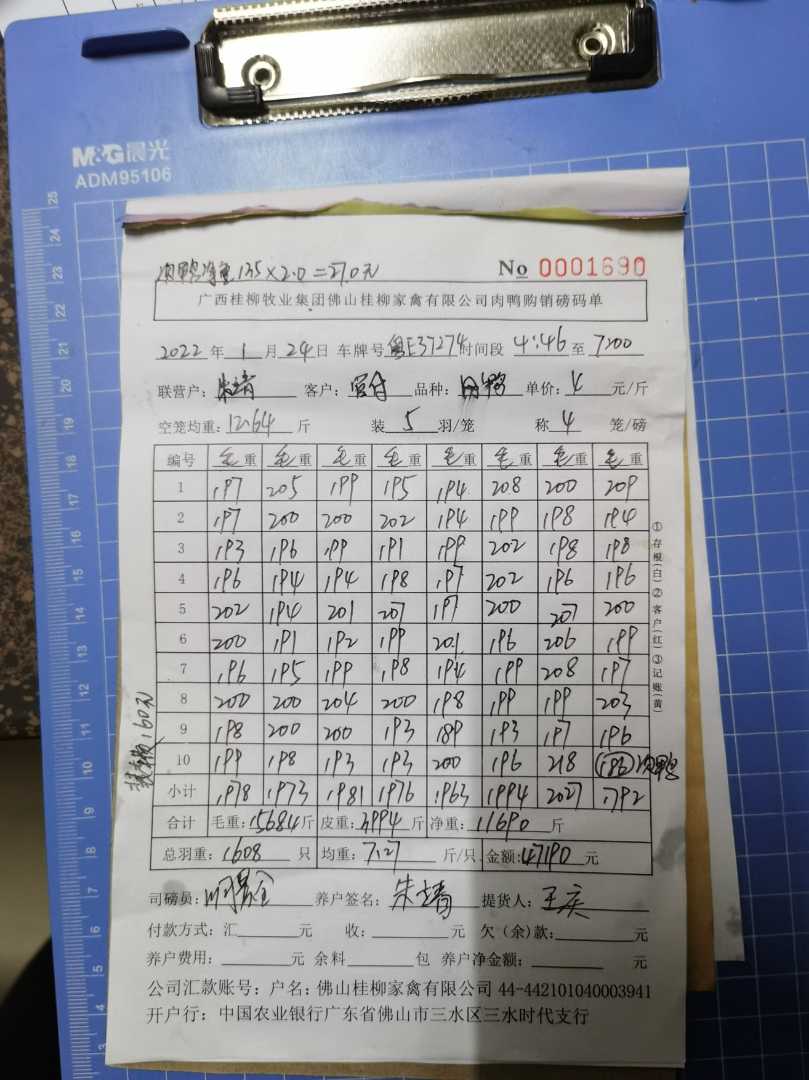 M&G晨光
ADM95106
净重135×2.0=270元
No 0001690
广西桂柳牧业集团佛山桂柳家禽有限公司肉鸭购销磅码单
2022年1月24日 车牌号粤E37274时间段 4:46至7:00
联营户: 朱靖 客户: 品种: 单价: 4 元/斤
空笼均重: 12.64 斤 装 5 羽/笼 称 4 笼/磅
编号 毛重 毛重 毛重 毛重 毛重 毛重 毛重 毛重
1 197 205 199 195 194 208 200 209
2 197 200 200 202 194 199 198 194
3 193 196 199 191 199 202 198 198
4 196 194 194 198 197 202 196 196
5 202 194 201 207 197 200 207 200
6 200 191 192 199 201 196 206 199
7 196 195 199 198 194 199 208 197
8 200 200 204 200 198 199 199 203
9 198 200 200 193 189 193 197 196
10 199 198 193 193 200 196 218 (186)
小计 1978 1973 1981 1976 1963 1994 2027 1792
合计 毛重: 15684斤 皮重: 3994斤 净重: 11690斤
总羽重: 1608 只 均重: 7.27 斤/只 金额: 47190元
司磅员: 养户签名: 朱靖 提货人:
付款方式: 汇 元 收: 元 欠(余)款: 元
养户费用: 元 余料 包 养户净金额: 元
公司汇款账号: 户名: 佛山桂柳家禽有限公司 44-442101040003941
开户行: 中国农业银行广东省佛山市三水区三水时代支行
①存根(白)②客户(红)③记账(黄)
160元